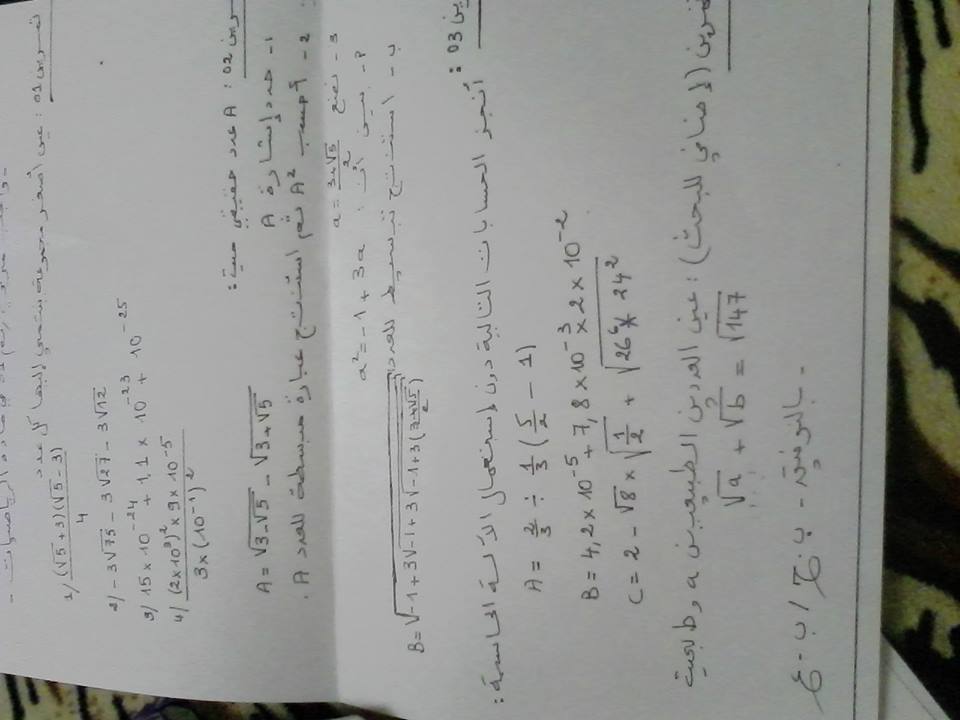 تمرين 01: عين أصغر مجموعة ينتمي إليها كل عدد
1/ (√5+3)(√5-3) / 4
2/ -3√75 - 3√27 - 3√12
3/ 15×10^-24 + 11×10^-23 + 10^-25
4/ (2×10^3)^2×9×10^-5 / 3×(10^-1)^2
تمرين 02: A عدد حقيقي حيث:
A = √(3-√5) - √(3+√5)
1- حدد إشارة A
2- احسب A² ثم استنتج عبارة مبسطة للعدد A.
3- نضع a = (3+√5)/2
أ- بين أن: a² = -1 + 3a
ب- استنتج تبسيط للعدد
B = √(-1+3√(-1+3√(-1+3(
03:
أنجز الحسابات التالية دون إستعمال الآلة الحاسبة:
A = 2/3 ÷ 1/3 (5/2 - 1)
B = 4,2×10^-5 + 7,8×10^-3×2×10^-2
C = 2 - √8 × √(1/2) +
تمرين (إضافي للبحث): عين العددين الطبيعيين a و b حيث
√a + √b = √147
بالتوفيق